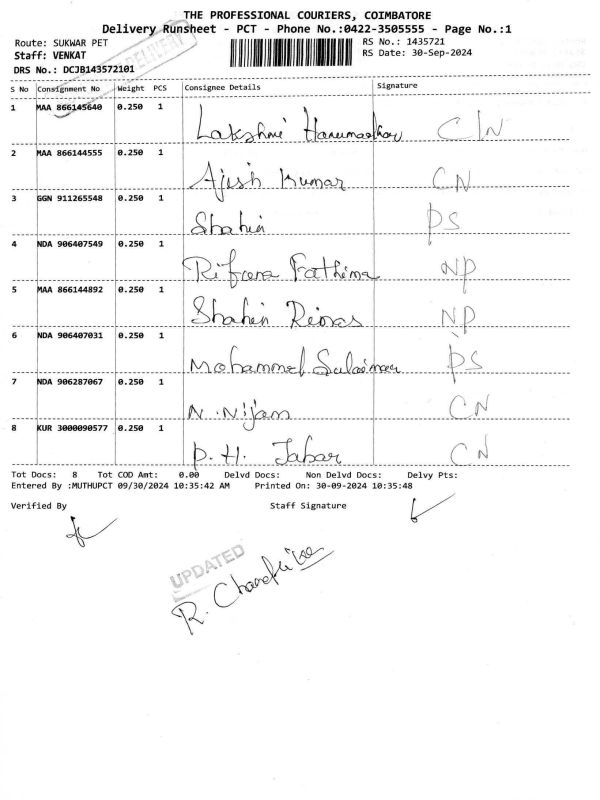 THE PROFESSIONAL COURIERS, COIMBATORE
Delivery Runsheet - PCT - Phone No.:0422-3505555 - Page No.:1
Route: SUKWAR PET RS No.: 1435721
Staff: VENKAT RS Date: 30-Sep-2024
DELIVERY
DRS No.: DCJB143572101
S No Consignment No Weight PCS Consignee Details Signature
1 MAA 866145640 0.250 1 Lakshmi CN
2 MAA 866144555 0.250 1 Ajish Kumar CN
3 GGN 911265548 0.250 1 Shahin PS
4 NDA 906407549 0.250 1 Rifana Fathima NP
5 MAA 866144892 0.250 1 Shahin NP
6 NDA 906407031 0.250 1 Mohammed Sulaiman PS
7 NDA 906287067 0.250 1 N. Nijam CN
8 KUR 3000090577 0.250 1 P. H. Jabar CN
Tot Docs: 8 Tot COD Amt: 0.00 Delvd Docs: Non Delvd Docs: Delvy Pts:
Entered By :MUTHUPCT 09/30/2024 10:35:42 AM Printed On: 30-09-2024 10:35:48
Verified By Staff Signature
UPDATED
R.